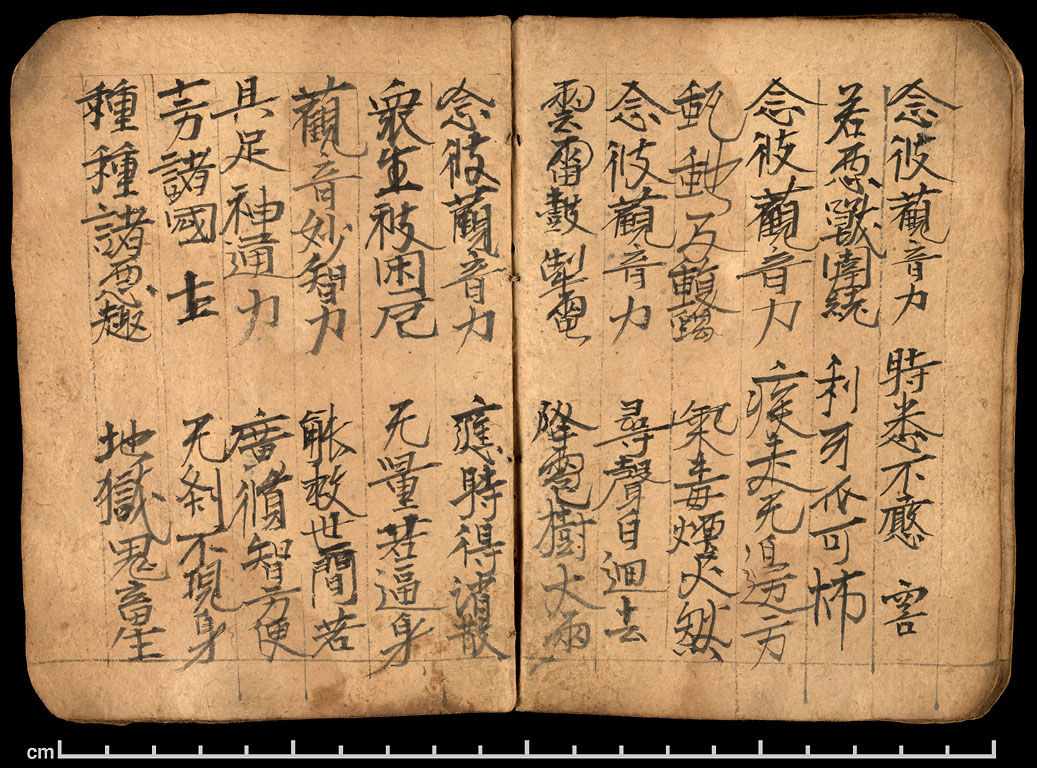 念彼觀音力 時悉不害
若惡獸圍繞 利牙爪可怖
念彼觀音力 疾走无邊方
蚖虵及蝮蝎 氣毒煙火然
念彼觀音力 尋聲自迴去
雲雷鼓掣電 降雹樹大雨
念彼觀音力 應時得消散
衆生被困厄 无量苦逼身
觀音妙智力 能救世間若
具足神通力 廣脩智方便
十方諸國土 无刹不現身
種種諸惡趣 地獄鬼畜生
cm